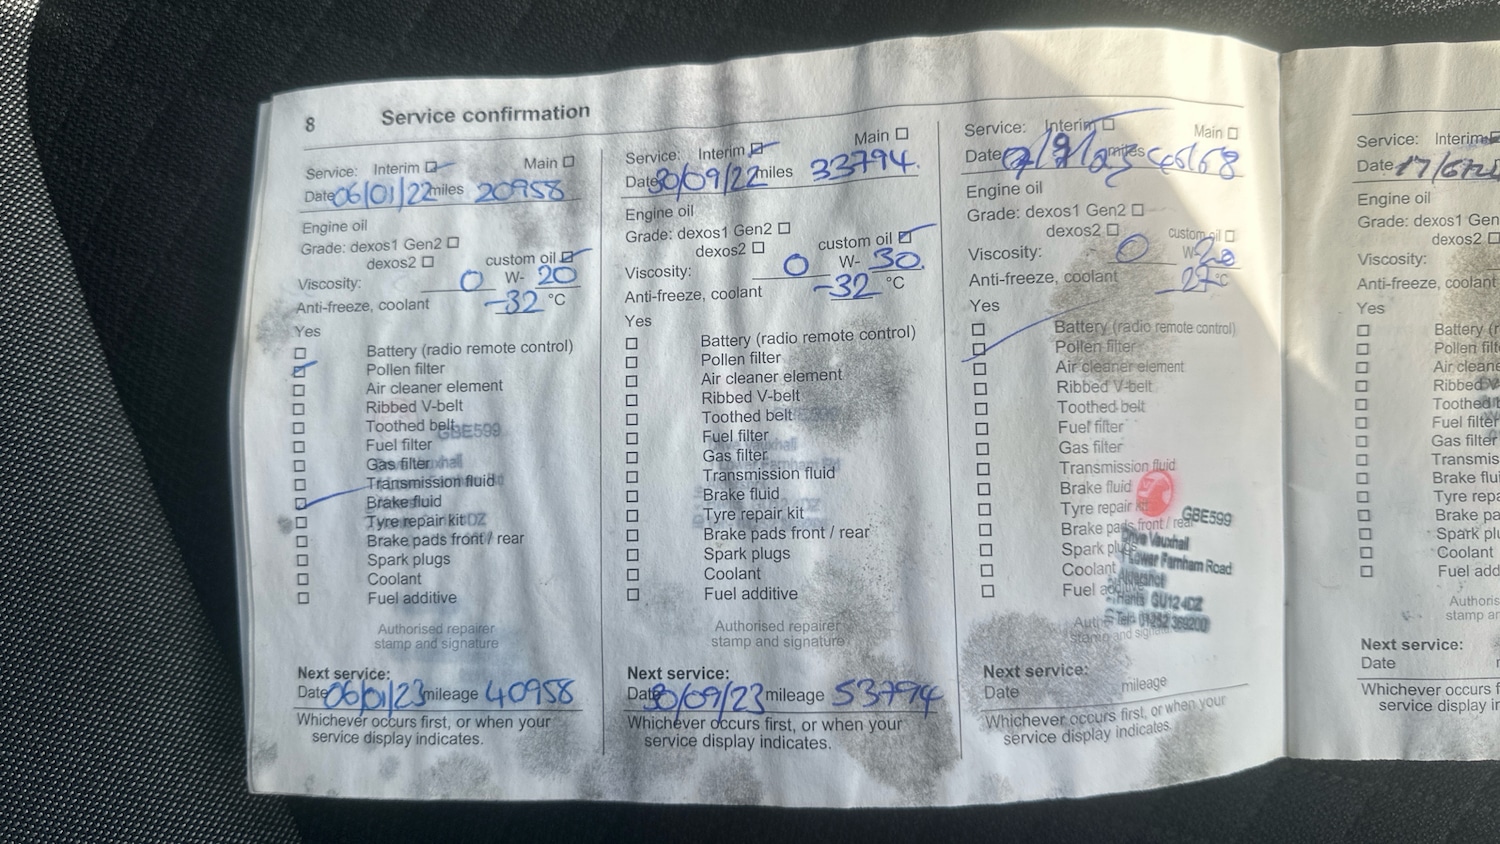 8 Service confirmation
Service: Interim Main
Date 06/01/22 miles 20958
Engine oil
Grade: dexos1 Gen2
dexos2 custom oil
Viscosity: 0 W- 20
Anti-freeze, coolant -32 °C
Yes
Battery (radio remote control)
Pollen filter
Air cleaner element
Ribbed V-belt
Toothed belt
GBE599
Fuel filter
Gas filter
Transmission fluid
Brake fluid
Tyre repair kit
Brake pads front / rear
Spark plugs
Coolant
Fuel additive
Authorised repairer
stamp and signature
Next service:
Date 06/01/23 mileage 40958
Whichever occurs first, or when your
service display indicates.
Service: Interim Main
Date 30/09/22 miles 33794.
Engine oil
Grade: dexos1 Gen2
dexos2 custom oil
Viscosity: 0 W- 30.
Anti-freeze, coolant -32 °C
Yes
Battery (radio remote control)
Pollen filter
Air cleaner element
Ribbed V-belt
Toothed belt
Fuel filter
Gas filter
Transmission fluid
Brake fluid
Tyre repair kit
Brake pads front / rear
Spark plugs
Coolant
Fuel additive
Authorised repairer
stamp and signature
Next service:
Date 30/09/23 mileage 53794
Whichever occurs first, or when your
service display indicates.
Service: Interim Main
Date miles
Engine oil
Grade: dexos1 Gen2
dexos2 custom oil
Viscosity: 0 W-
Anti-freeze, coolant °C
Yes
Battery (radio remote control)
Pollen filter
Air cleaner element
Ribbed V-belt
Toothed belt
Fuel filter
Gas filter
Transmission fluid
Brake fluid
Tyre repair
GBE599
Brake pads front / rear
Vauxhall
Spark plugs
Lower Farnham Road
Coolant
Aldershot
Fuel
Hants GU12 4DZ
Tel: 01252 369200
stamp and
Next service:
Date mileage
Whichever occurs first, or when your
service display indicates.
Service: Interim
Date 17/6/2
Engine oil
Grade: dexos1 Gen
dexos2
Viscosity:
Anti-freeze, coolant
Yes
Battery (r
Pollen filt
Air clean
Ribbed V
Toothed
Fuel filter
Gas filter
Transmis
Brake flu
Tyre repa
Brake pa
Spark plu
Coolant
Fuel add
Authoris
stamp ar
Next service:
Date
Whichever occurs f
service display ir